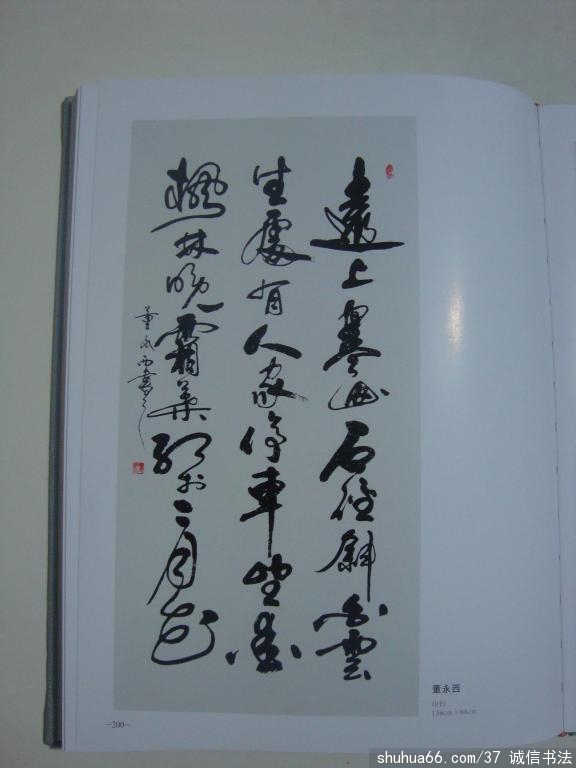 遠上寒山石徑斜白雲
生處有人家停車坐愛
楓林晚霜葉紅於二月花
董永西書之
董永西
山行
136cm×68cm
-200-
shuhua66.com/37 诚信书法